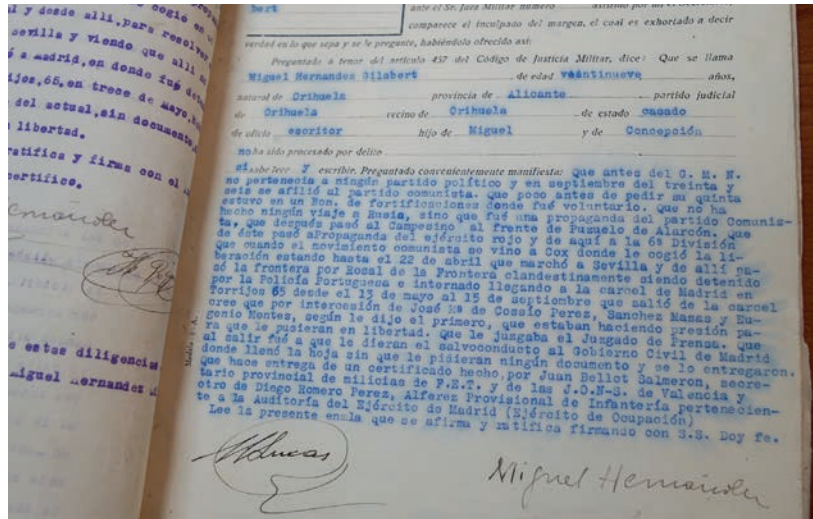 cogió en
l y desde allí,para resolver
sevilla y viendo que allí
a madrid,en donde fué dete
ijos,65,en trece de mayo,
del actual,sin documento
libertad.
ratifica y firma con el
certifico.
e estas diligencias
miguel Hernandez
bert
ante el Sr. Juez Militar número
comparece el inculpado del margen, el cual es exhortado a decir
verdad en lo que sepa y se le pregunte, habiéndolo ofrecido así:
Preguntado a tenor del artículo 457 del Código de Justicia Militar, dice: Que se llama
Miguel Hernandes Gilabert, de edad veintinueve años,
natural de Orihuela provincia de Alicante partido judicial
de Orihuela vecino de Orihuela de estado casado
de oficio escritor hijo de Miguel y de Concepción
no ha sido procesado por delito
si sabe leer y escribir. Preguntado convenientemente manifiesta: Que antes del G. M. N.
no pertenecia a ningún partido político y en septiembre del treinta y
seis se afilió al partido comunista. Que poco antes de pedir su quinta
estuvo en un Bon. de fortificaciones donde fué voluntario. Que no ha
hecho ningún viaje a Rusia, sino que fué una propaganda del partido Comunis-
ta, que después pasó al Campesino al frente de Pozuelo de Alarcón. Que
de éste pasó aPropaganda del ejército rojo y de aquí a la 6ª División
Que cuando el movimiento comunista se vino a Cox donde le cogió la li-
beración estando hasta el 22 de abril que marchó a Sevilla y de allí pa-
só la frontera por Rosal de la Frontera clandestinamente siendo detenido
por la Policía Portuguesa e internado llegando a la carcel de Madrid en
Torrijos 65 desde el 13 de mayo al 15 de septiembre que salió de la carcel
cree que por intercesión de José Mª de Cossio Perez, Sanchez Mazas y Eu-
genio Montes, según le dijo el primero, que estaban haciendo presión pa-
ra que le pusieran en libertad. Que le juzgaba el Juzgado de Prensa. Que
al salir fué a que le dieran el salvoconducto al Gobierno Civil de Madrid
donde llenó la hoja sin que le pidieran ningún documento y se lo entregaron.
Que hace entrega de un certificado hecho,por Juan Bellot Salmeron, secre-
tario provincial de milicias de F.E.T. y de las J.O-N-S. de Valencia y
otro de Diego Romero Perez, Alferez Provisional de Infantería pertenecien-
te a la Auditoría del Ejército de Madrid (Ejército de Ocupación)
Lee la presente enmla que se afirma y ratifica firmando con S.S. Doy fe.
Miguel Hernández